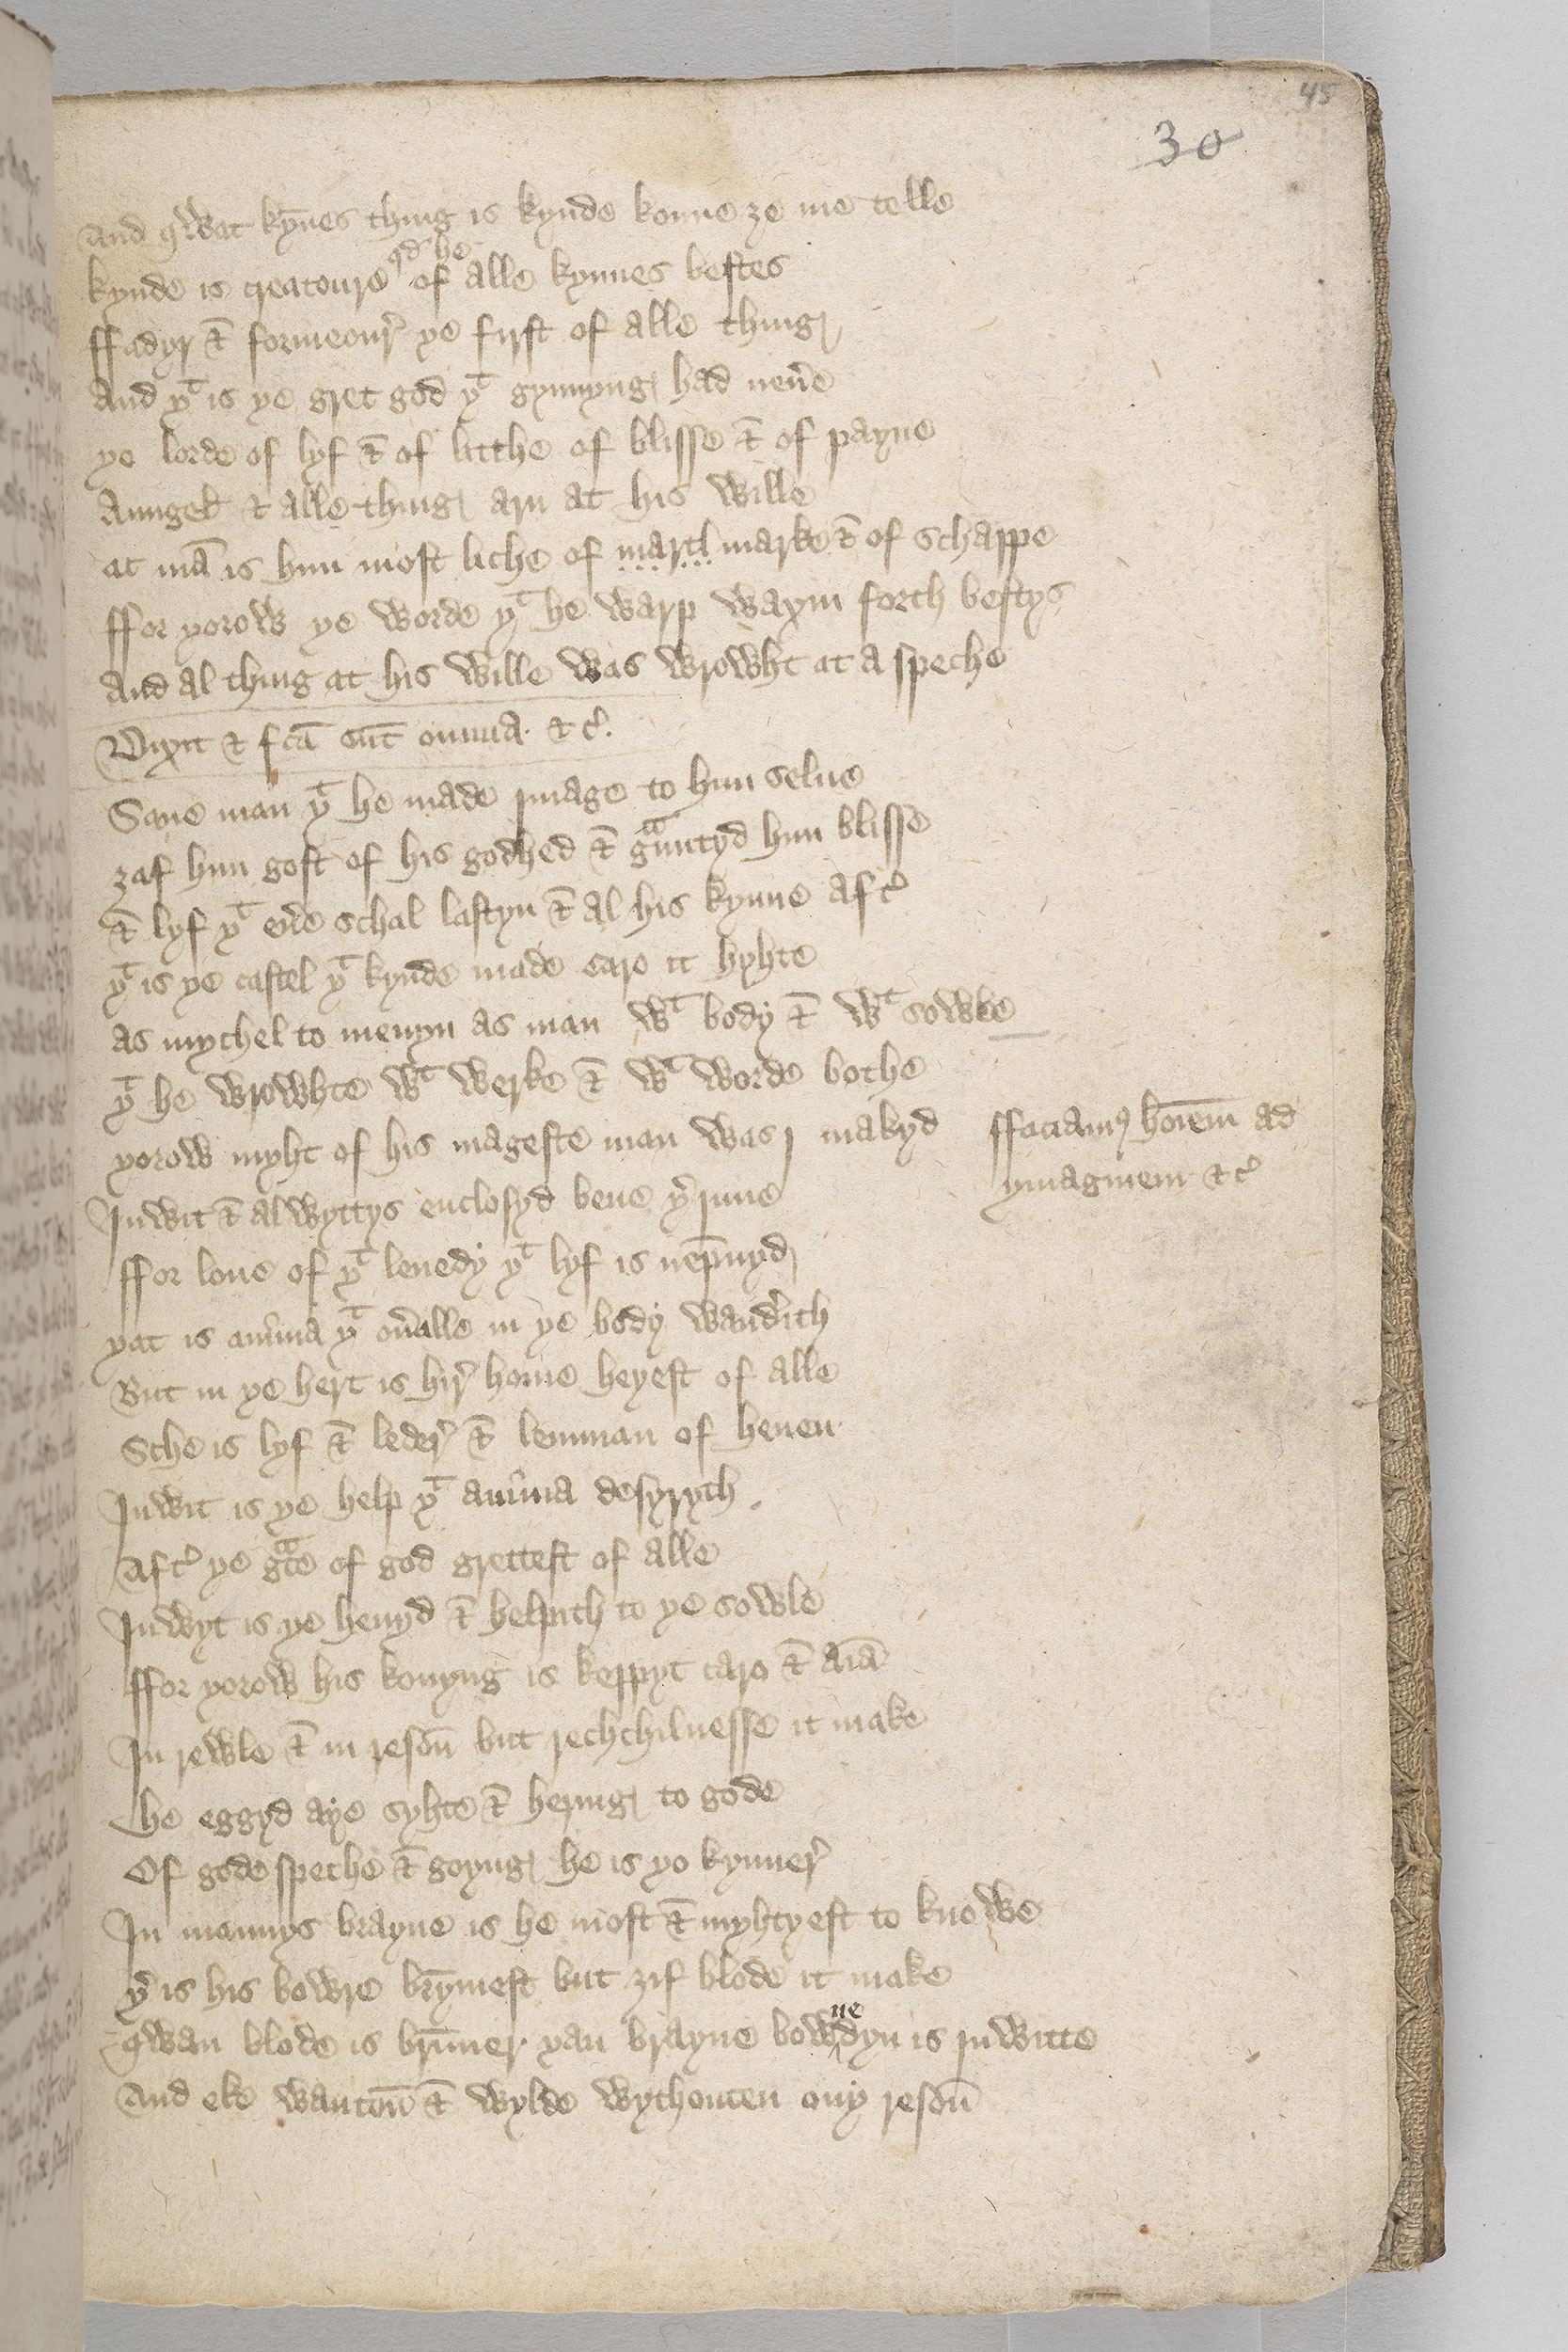 45
30
And qwat kyn̄es thing is kynde konne ze me telle
qd he
kynde is creatoure of alle kynnes bestes
ffadyr & formeour ye first of alle thing
And yt is ye gret god yt gynnyng had neu̾e
ye lorde of lyf & of litthe of blisse & of payne
Aungel & alle thing arn at his wille
at mā is hym most liche of martl marke & of schappe
ffor yorow ye worde yt he warp waxin forth bestys
And al thing at his wille was wrowht at a speche
Dixit & fcā sūt omnia & c̾.
Saue man yt he made ymage to hym selue
zaf hym gost of his godhed & gͣuntyd hym blisse
& lyf yt eu̾e schal lastyn & al his kynne aft̾
yt is ye castel yt kynde made caro it hyhte
as mychel to menyn as man wt body & wt sowle
yt he wrowhte wt werke & wt worde bothe
yorow myht of his mageste man was makyd
ffaciamꝰ hoīem ad
ymaginem & c̾
Inwit & al wyttys enclosyd bene y̾inne
ffor loue of yt leuedy yt lyf is nep̄nyd
yat is anīma yt ou̾alle in ye body wand̾ith
But in ye hert is hir̾ home heyest of alle
Sche is lyf & leder̾ & lemman of heuen
Inwit is ye help yt anīma desyryth
Aft̾ ye gͣce of god grettest of alle
Inwyt is ye heuyd & helpith to ye sowle
ffor yorow his konyng is keppyt caro & aīa
In rewle & in resoū but rechchilnesse it make
he eggyd aye syhte & hering to gode
Of gode speche & goyng he is yo kynner̾
In mannys brayne is he most & myhtyest to knowe
y̾ is his bowre brȳmest but zif blode it make
qwan blode is brīmer yan brayne bowdyn is inwitte
ne
And eke wantoū & wylde wythouten ony resoū